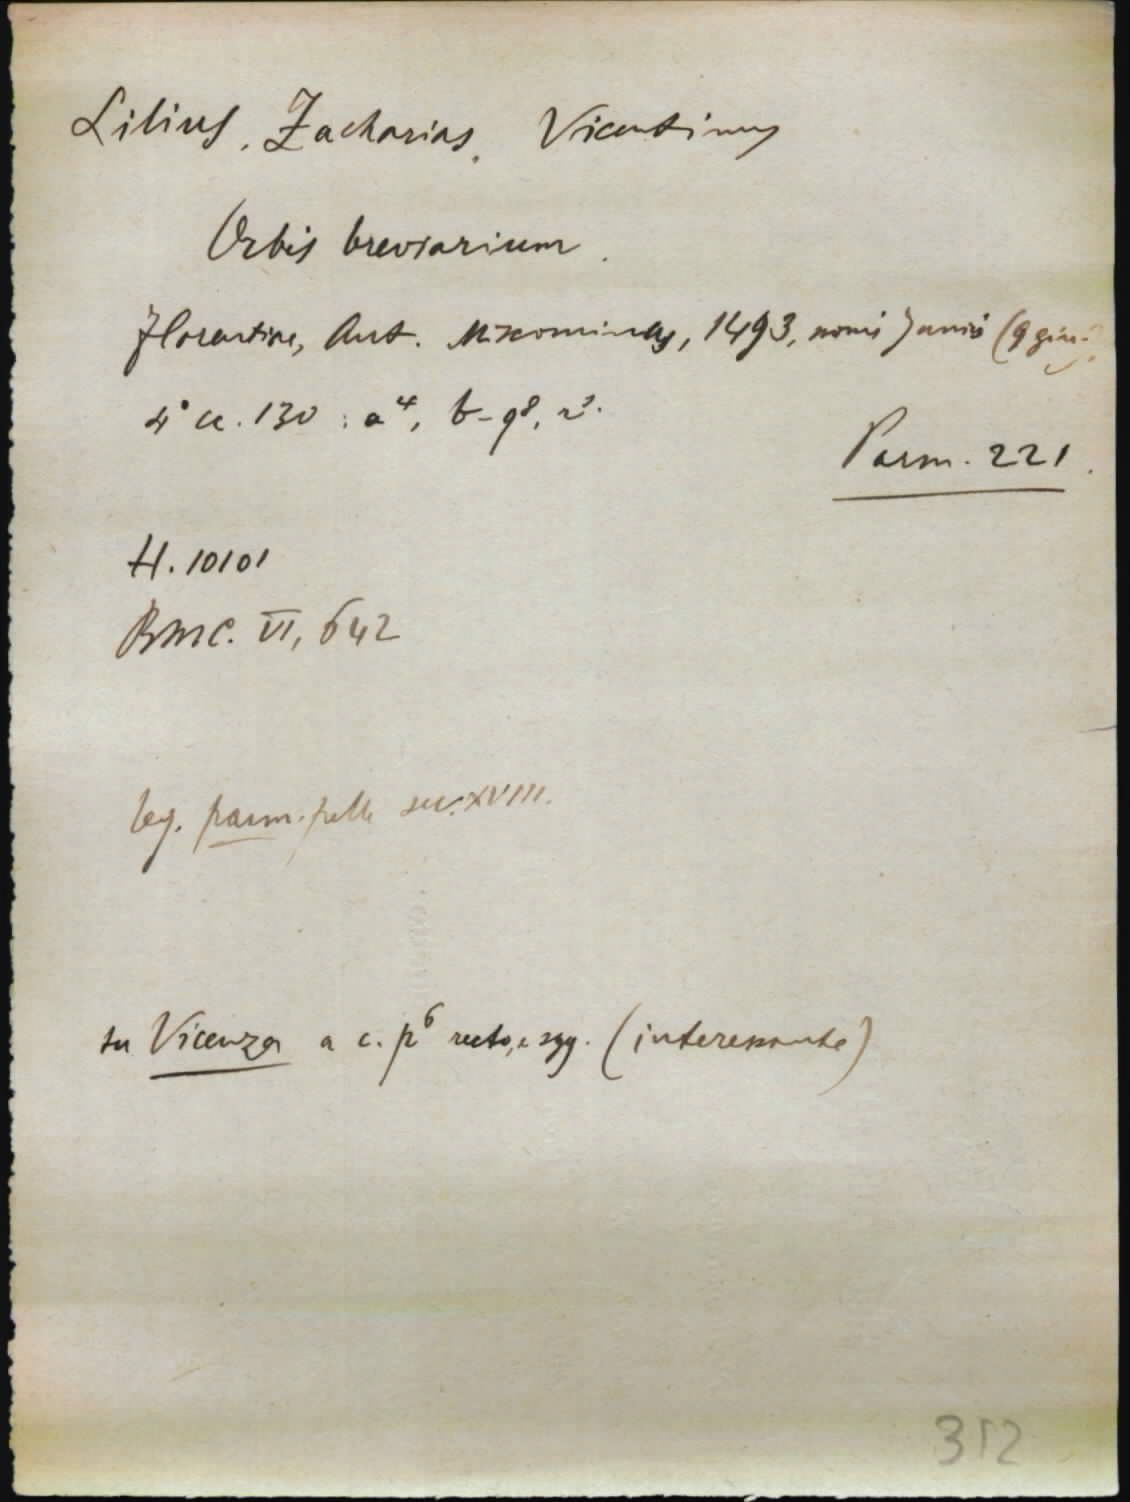 Lilius, Zacharias, Vicentinus
Orbis breviarium.
Florentiae, Ant. Miscominus, 1493, nonis Junii (9 giu.
4° cc. 130 : a⁴, b-q⁸, r².
Parm. 221.
H. 10101
BMC. VI, 642
leg. parm. pelle sec. XVIII.
su Vicenza a c. p⁶ recto, e sgg. (interessante)
312